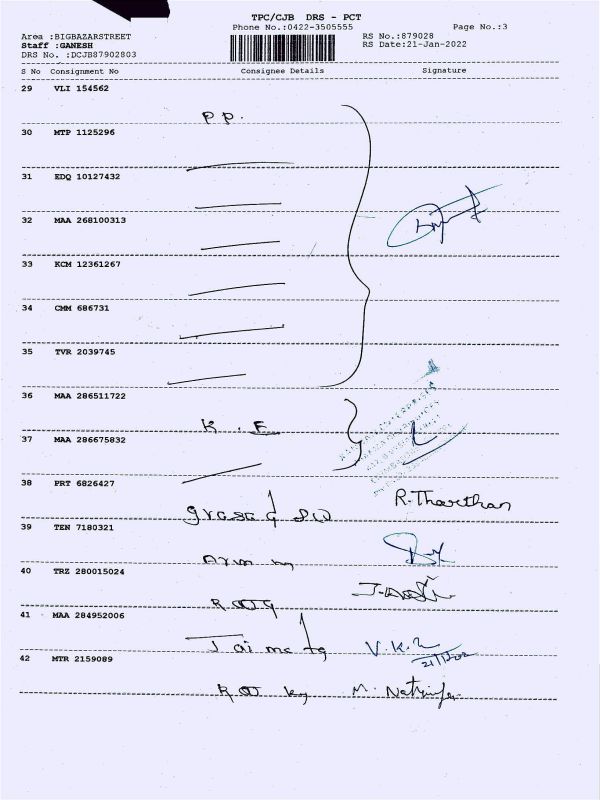 TPC/CJB DRS - PCT
Phone No.:0422-3505555
Page No.:3
Area :BIGBAZARSTREET
Staff :GANESH
DRS No. :DCJB87902803
RS No.:879028
RS Date:21-Jan-2022
S No Consignment No Consignee Details Signature
29 VLI 154562
P P.
30 MTP 1125296
31 EDQ 10127432
32 MAA 268100313
33 KCM 12361267
34 CMM 686731
35 TVR 2039745
36 MAA 286511722
K. E
37 MAA 286675832
38 PRT 6826427
R. Tharthan
39 TEN 7180321
Arun m
40 TRZ 280015024
41 MAA 284952006
Jai mata
V.K.
42 MTR 2159089